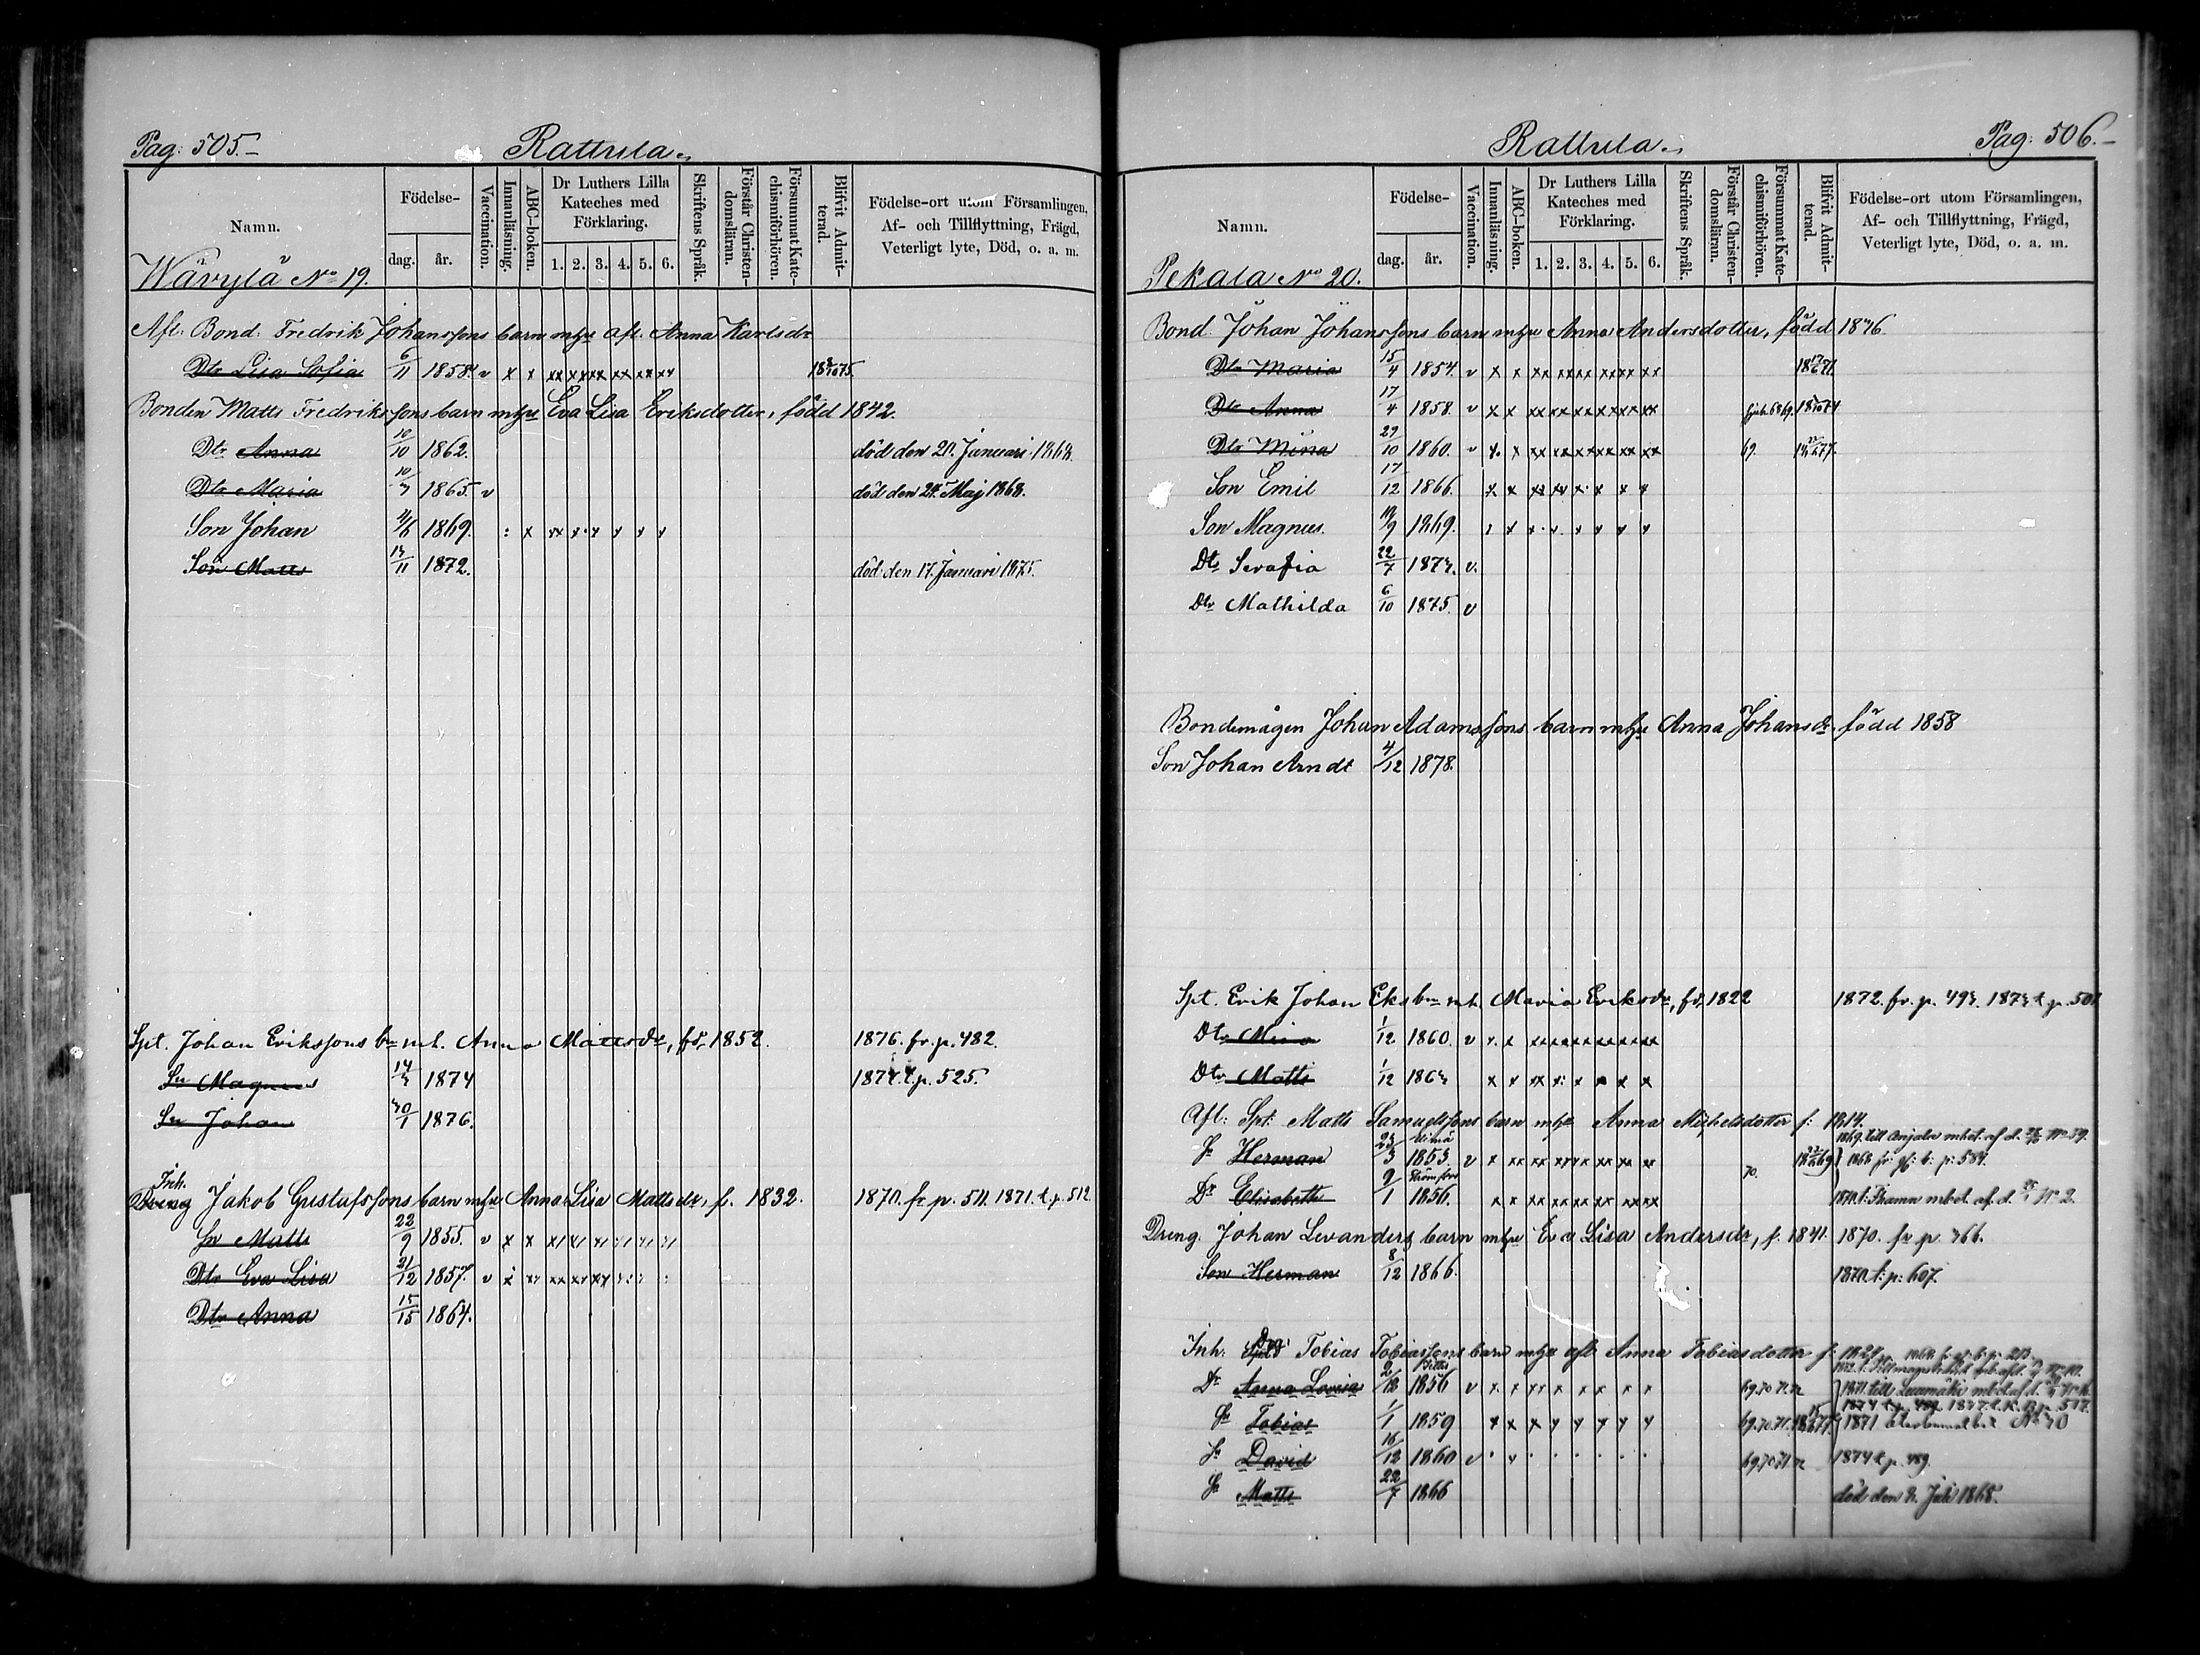 Pag: 505.
Rattula.
Namn.
Födelse-
dag.
år.
Vaccination.
Innanläsning.
ABC-boken.
Dr Luthers Lilla Kateches med Förklaring.
1. 2. 3. 4. 5. 6.
Skriftens Språk.
Förstår Christendomsläran.
Försummat Katechismiförhören.
Blifvit Admitterad.
Födelse-ort utom Församlingen, Af- och Tillflyttning, Frägd, Veterligt lyte, Död, o. a. m.
Wävylä No 19.
Afl: Bond: Fredrik Johanssons barn mhu afl. Anna Karlsdr
Dtr Lisa Sofia 6/11 1858. v x x xx xx xx xx xx xx
Bonden Matts Fredrikssons barn mhu Eva Lisa Eriksdotter, född 1842.
Dtr Anna 10/10 1862. död den 20. Januari 1868.
Dtr Maria 10/3 1865. v död den 24. Maj 1868.
Son Johan 4/6 1869.
Son Matts 13/11 1872. död den 17. Januari 1875.
Spt. Johan Erikssons bn mh. Anna Mattsdr, fd. 1852. 1876. fr. p. 482.
Sn Magnus 14/3 1874 t. p. 525.
Sn Johan 30/1 1876.
Inh.
Dreng Jakob Gustafssons barn mhu Anna Lisa Mattsdr, f. 1832. 1870. fr p. 511. 1871. t. p. 512
Sn Matts 22/9 1855. v x x
Dtr Eva Lisa 21/12 1857. v x
Dtr Anna 15/15 1864.
Rattula.
Pag: 506.
Namn.
Födelse-
dag.
år.
Vaccination.
Innanläsning.
ABC-boken.
Dr Luthers Lilla Kateches med Förklaring.
1. 2. 3. 4. 5. 6.
Skriftens Språk.
Förstår Christendomsläran.
Försummat Katechismiförhören.
Blifvit Admitterad.
Födelse-ort utom Församlingen, Af- och Tillflyttning, Frägd, Veterligt lyte, Död, o. a. m.
Pekala No 20.
Bond. Johan Johanssons barn mhu Anna Andersdotter, född 1836.
Dtr Maria 15/4 1854. v x x xx xx xx xx xx xx
Dtr Anna 17/4 1858. v x x xx xx xx xx xx xx
Dtr Mina 29/10 1860. v x x xx xx xx xx xx xx 69.
Son Emil 17/12 1866.
Son Magnus. 19/9 1869.
Dtr Serafia 22/7 1873. v.
Dtr Mathilda 6/10 1875. v
Bondemågen Johan Adamssons barn mhu Anna Johansdr född 1858
Son Johan Arndt 4/12 1878.
Spt. Erik Johan Eks bn mh. Maria Eriksdr, fd. 1822 1872. fr. p. 493. 1873 t. p. 501.
Dtr Mina 1/12 1860. v
Dtr Matts 1/12 1863
Afl: Spt: Matts Samuelssons barn mhu Anna Michelsdotter f: 1814.
Sn Herman 23/3 1853. v 70.
Dr Elisabeth 9/1 1856.
Dreng. Johan Levanders barn mhu Eva Lisa Andersdr, f. 1841. 1870. fr p. 366.
Son Herman 8/12 1866. 1870. t: p: 607.
Inh. Tobias Tobiassons barn mhu afl Anna Tobiasdotter f.
Dr Anna Lovisa 1856 v 69.70.71.72
Sn Tobias 1/1 1859 69.70.71.
Sn David 16/12 1860 v 69.70.71.72 1874 t p. 489.
Sn Matts 22/7 1866 död den 8. Juli 1868.